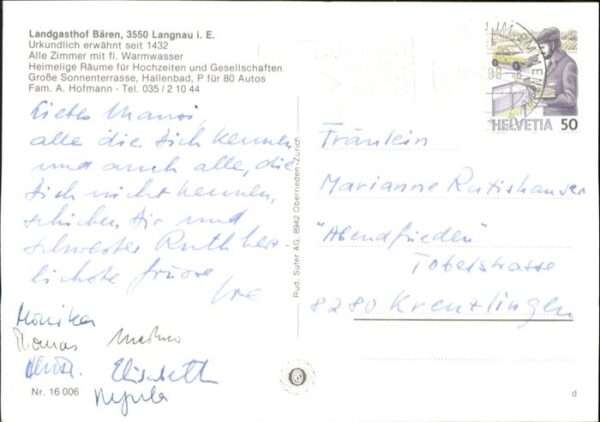 Landgasthof Bären, 3550 Langnau i. E.
Urkundlich erwähnt seit 1432
Alle Zimmer mit fl. Warmwasser
Heimelige Räume für Hochzeiten und Gesellschaften
Große Sonnenterrasse, Hallenbad, P für 80 Autos
Fam. A. Hofmann - Tel. 035 / 2 10 44
alle die Dich kennen
und auch alle, die
Dich nicht kennen,
schicken Dir und
Schwester Ruth herz
lichste Grüsse
Monika
Thomas
Elisabeth
Regula
Nr. 16 006
Rud. Suter AG, 8942 Oberrieden-Zürich
HELVETIA 50
Fräulein
Marianne Rutishauser
"Abendfrieden"
Tobelstrasse
8280 Kreuzlingen
d